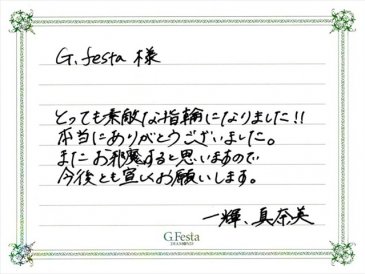 G.festa 様
とっても素敵な指輪になりました!!
本当にありがとうございました。
またお邪魔すると思いますので
今後とも宜しくお願いします。
一輝、真奈美
G.Festa
DIAMOND